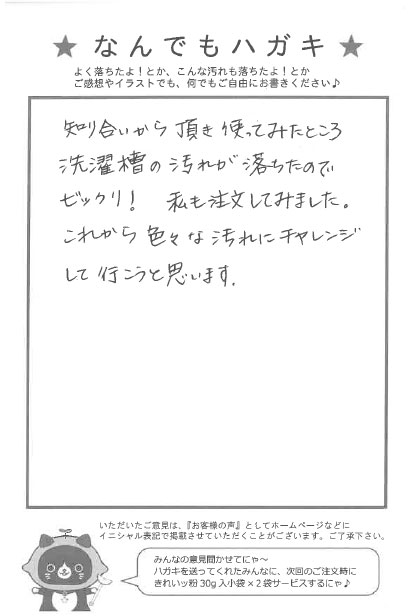 ★なんでもハガキ★
よく落ちたよ！とか、こんな汚れも落ちたよ！とか
ご感想やイラストでも、何でもご自由にお書きください♪
知り合いから頂き使ってみたところ
洗濯槽の汚れが落ちたので
ビックリ！ 私も注文してみました。
これから色々な汚れにチャレンジ
して行こうと思います.
いただいたご意見は、『お客様の声』としてホームページなどに
イニシャル表記で掲載させていただくことがございます。ご了承下さい。
みんなの意見聞かせてにゃ～
ハガキを送ってくれたみんなに、次回のご注文時に
きれいッ粉30g入小袋×2袋サービスするにゃ♪